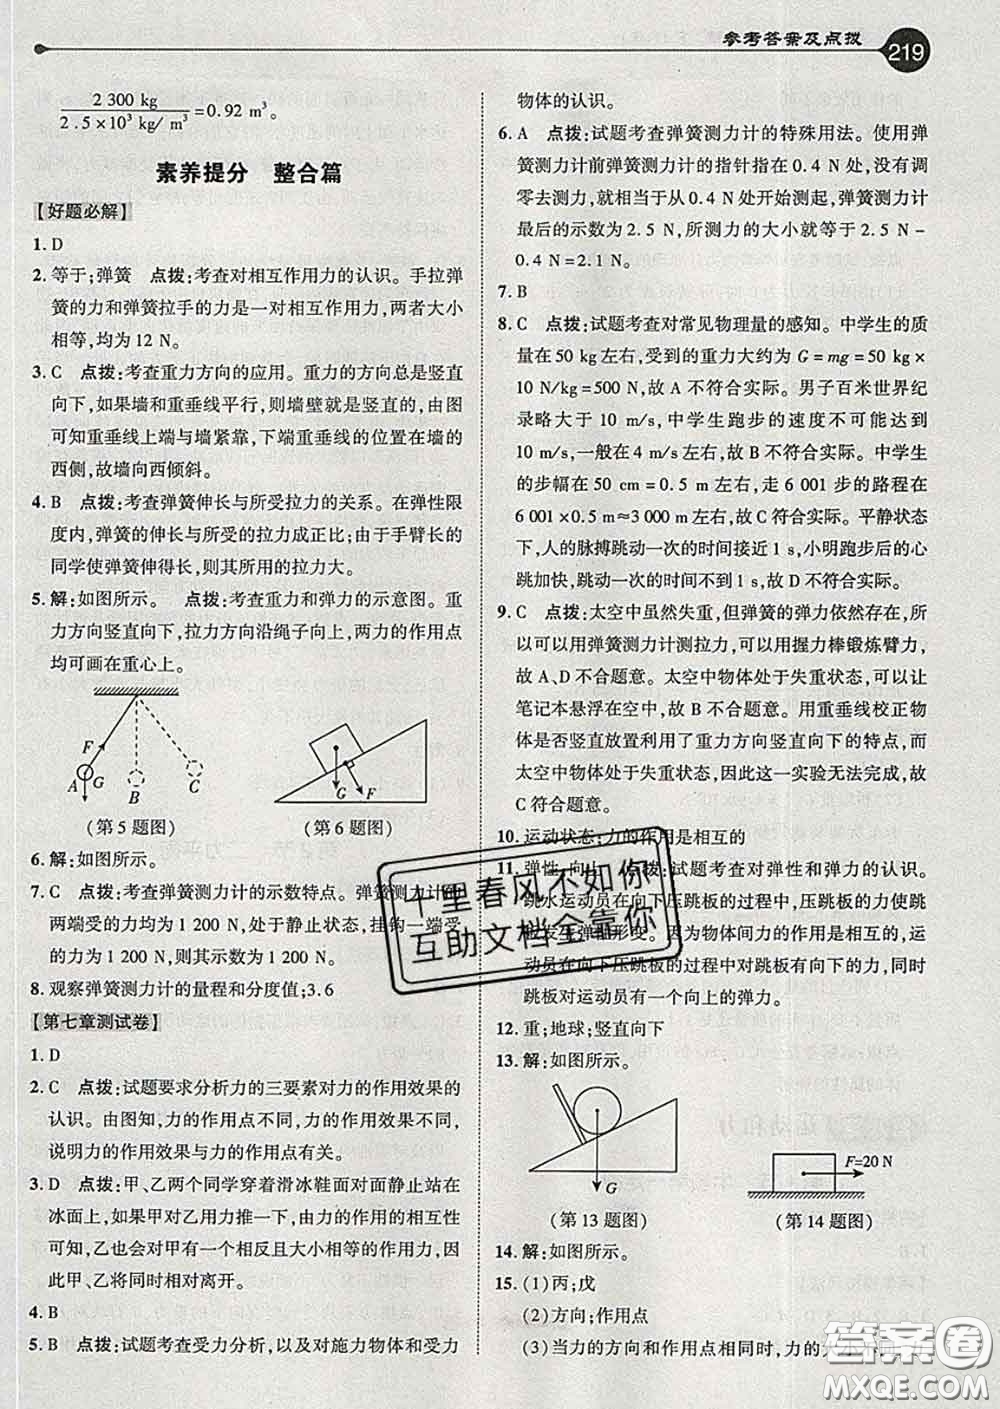 参考答案及点拨
219
2 300 kg
2.5×10³ kg/m³ =0.92 m³。
素养提分　整合篇
【好题必解】
1. D
2. 等于;弹簧　点拨:考查对相互作用力的认识。手拉弹
簧的力和弹簧拉手的力是一对相互作用力,两者大小
相等,均为 12 N。
3. C　点拨:考查重力方向的应用。重力的方向总是竖直
向下,如果墙和重垂线平行,则墙壁就是竖直的,由图
可知重垂线上端与墙紧靠,下端重垂线的位置在墙的
西侧,故墙向西倾斜。
4. B　点拨:考查弹簧伸长与所受拉力的关系。在弹性限
度内,弹簧的伸长与所受的拉力成正比;由于手臂长的
同学使弹簧伸得长,则其所用的拉力大。
5. 解:如图所示。　点拨:考查重力和弹力的示意图。重
力方向竖直向下,拉力方向沿绳子向上,两力的作用点
均可画在重心上。
F
A
G
B
C
G
F
(第 5 题图)
(第 6 题图)
6. 解:如图所示。
7. C　点拨:考查弹簧测力计的示数特点。弹簧测力计的
两端受的力均为 1 200 N,处于静止状态,挂钩一端受
的力为 1 200 N,则其示数为 1 200 N。
8. 观察弹簧测力计的量程和分度值;3.6
【第七章测试卷】
1. D
2. C　点拨:试题要求分析力的三要素对力的作用效果的
认识。由图知,力的作用点不同,力的作用效果不同,
说明力的作用效果与力的作用点有关。
3. D　点拨:甲、乙两个同学穿着滑冰鞋面对面静止站在
冰面上,如果甲对乙用力推一下,由力的作用的相互性
可知,乙也会对甲有一个相反且大小相等的作用力,因
此甲、乙将同时相对离开。
4. B
5. B　点拨:试题考查受力分析,以及对施力物体和受力
物体的认识。
6. A　点拨:试题考查弹簧测力计的特殊用法。使用弹
簧测力计前弹簧测力计的指针指在 0.4 N 处,没有调
零去测力,就相当于从 0.4 N 处开始测起,弹簧测力计
最后的示数为 2.5 N,所测力的大小就等于 2.5 N-
0.4 N=2.1 N。
7. B
8. C　点拨:试题考查对常见物理量的感知。中学生的质
量在 50 kg 左右,受到的重力大约为 G = mg = 50 kg ×
10 N/kg = 500 N,故 A 不符合实际。男子百米世界纪
录略大于 10 m/s,中学生跑步的速度不可能大于
10 m/s,一般在 4 m/s 左右,故 B 不符合实际。中学生
的步幅在 50 cm = 0.5 m 左右,走 6 001 步的路程在
6 001×0.5 m≈3 000 m 左右,故 C 符合实际。平静状态
下,人的脉搏跳动一次的时间接近 1 s,小明跑步后的心
跳加快,跳动一次的时间不到 1 s,故 D 不符合实际。
9. C　点拨:太空中虽然失重,但弹簧的弹力依然存在,所
以可以用弹簧测力计测拉力,可以用握力棒锻炼臂力,
故 A、D 不合题意。太空中物体处于失重状态,可以让
笔记本悬浮在空中,故 B 不合题意。用重垂线校正物
体是否竖直放置利用了重力方向竖直向下的特点,而
太空中物体处于失重状态,因此这一实验无法完成,故
C 符合题意。
10. 运动状态;力的作用是相互的
11. 弹性;向上　点拨:试题考查对弹性和弹力的认识。
跳水运动员在向下压跳板的过程中,压跳板的力使跳
板发生弹性形变。因为物体间力的作用是相互的,运
动员在向下压跳板的过程中对跳板有向下的力,同时
跳板对运动员有一个向上的弹力。
12. 重;地球;竖直向下
13. 解:如图所示。
G
F=20 N
(第 13 题图)
(第 14 题图)
14. 解:如图所示。
15. (1)丙;戊
(2)方向;作用点
(3)当力的方向和作用点相同时,力的大小
十里春风不如你
互助文档全靠你
答案圈
MXQE.COM